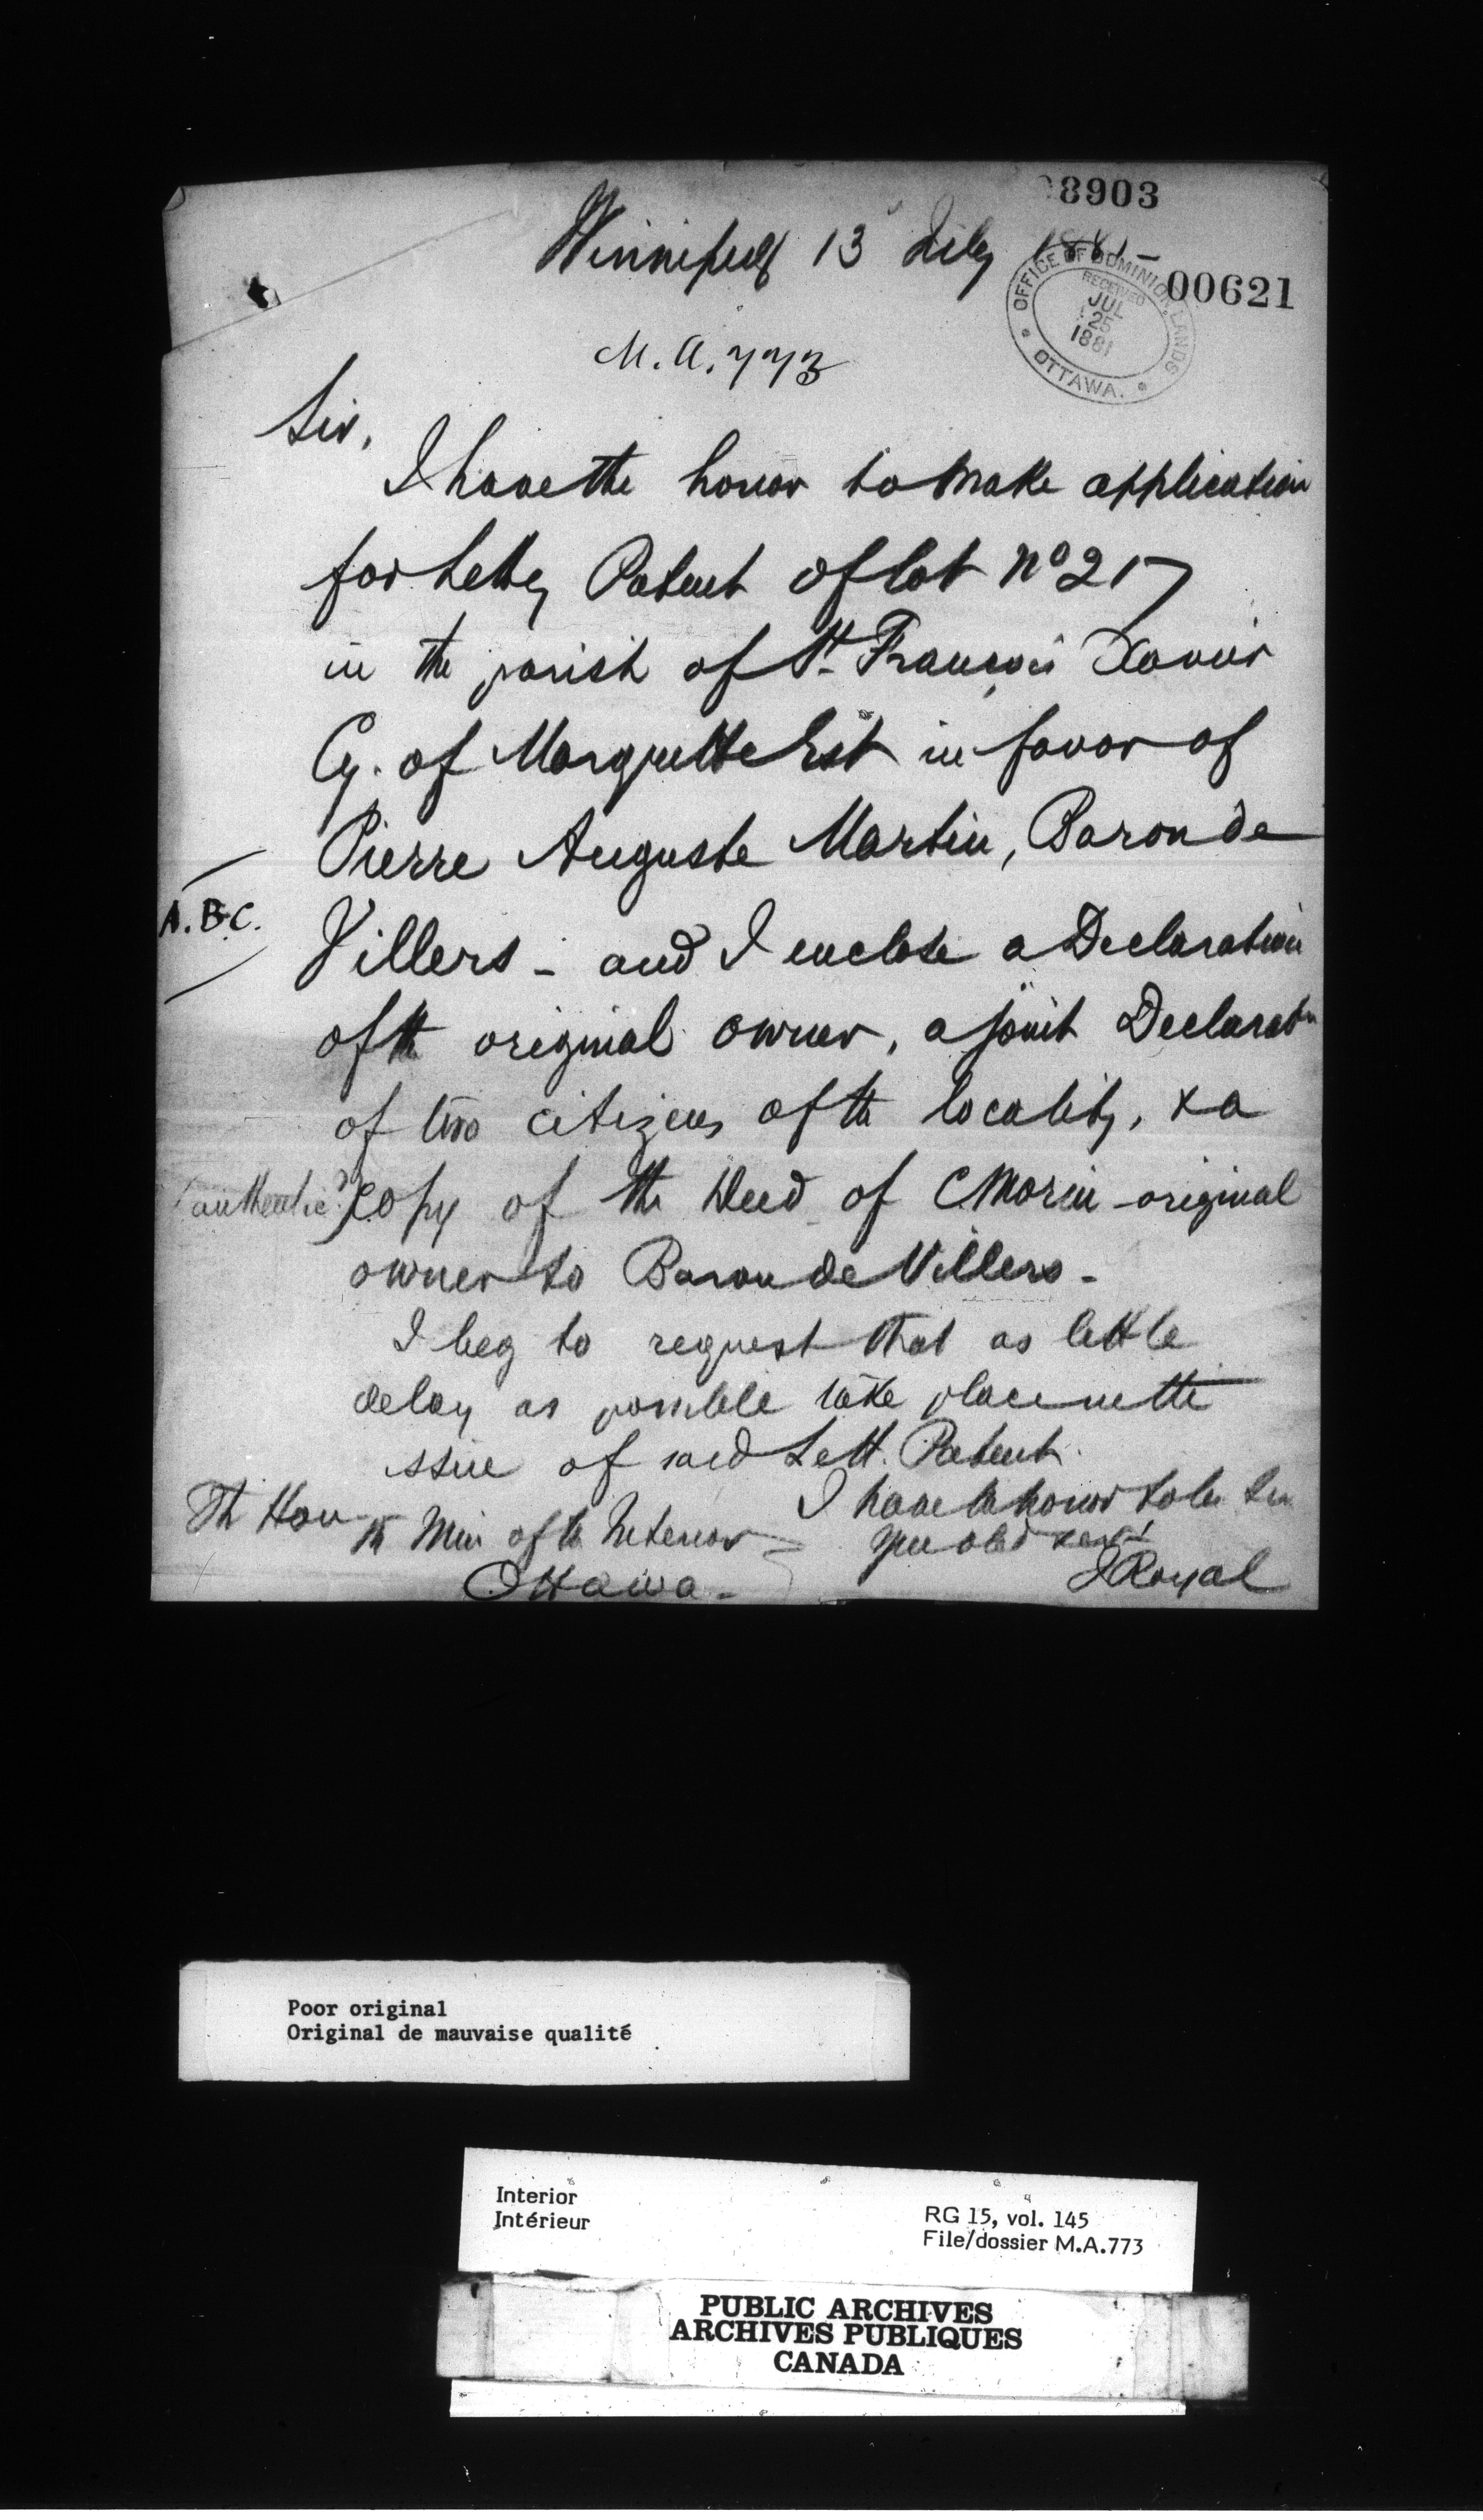 8903
Winnipeg 13 July 1881-
00621
OFFICE OF DOMINION LANDS
RECEIVED
JUL
25
1881
OTTAWA.
M.A. 773
Sir,
I have the honor to make application
for Letters Patent of lot No 217
in the parish of St. François Xavier
Cy. of Marquette Est in favor of
Pierre Auguste Martin, Baron de
A.B.C.
Villers - and I enclose a Declaration
of the original owner, a joint Declarat
of two citizens of the locality, & a
authentic copy of the Deed of C Morin original
owner to Baron de Villers -
I beg to request that as little
delay as possible take place in the
issue of said Lett. Patent.
I have the honor to be Sir
Th Hon
th Min of the Interior
your obed serv't
Ottawa -
J Royal
Poor original
Original de mauvaise qualité
Interior
Intérieur
RG 15, vol. 145
File/dossier M.A.773
PUBLIC ARCHIVES
ARCHIVES PUBLIQUES
CANADA